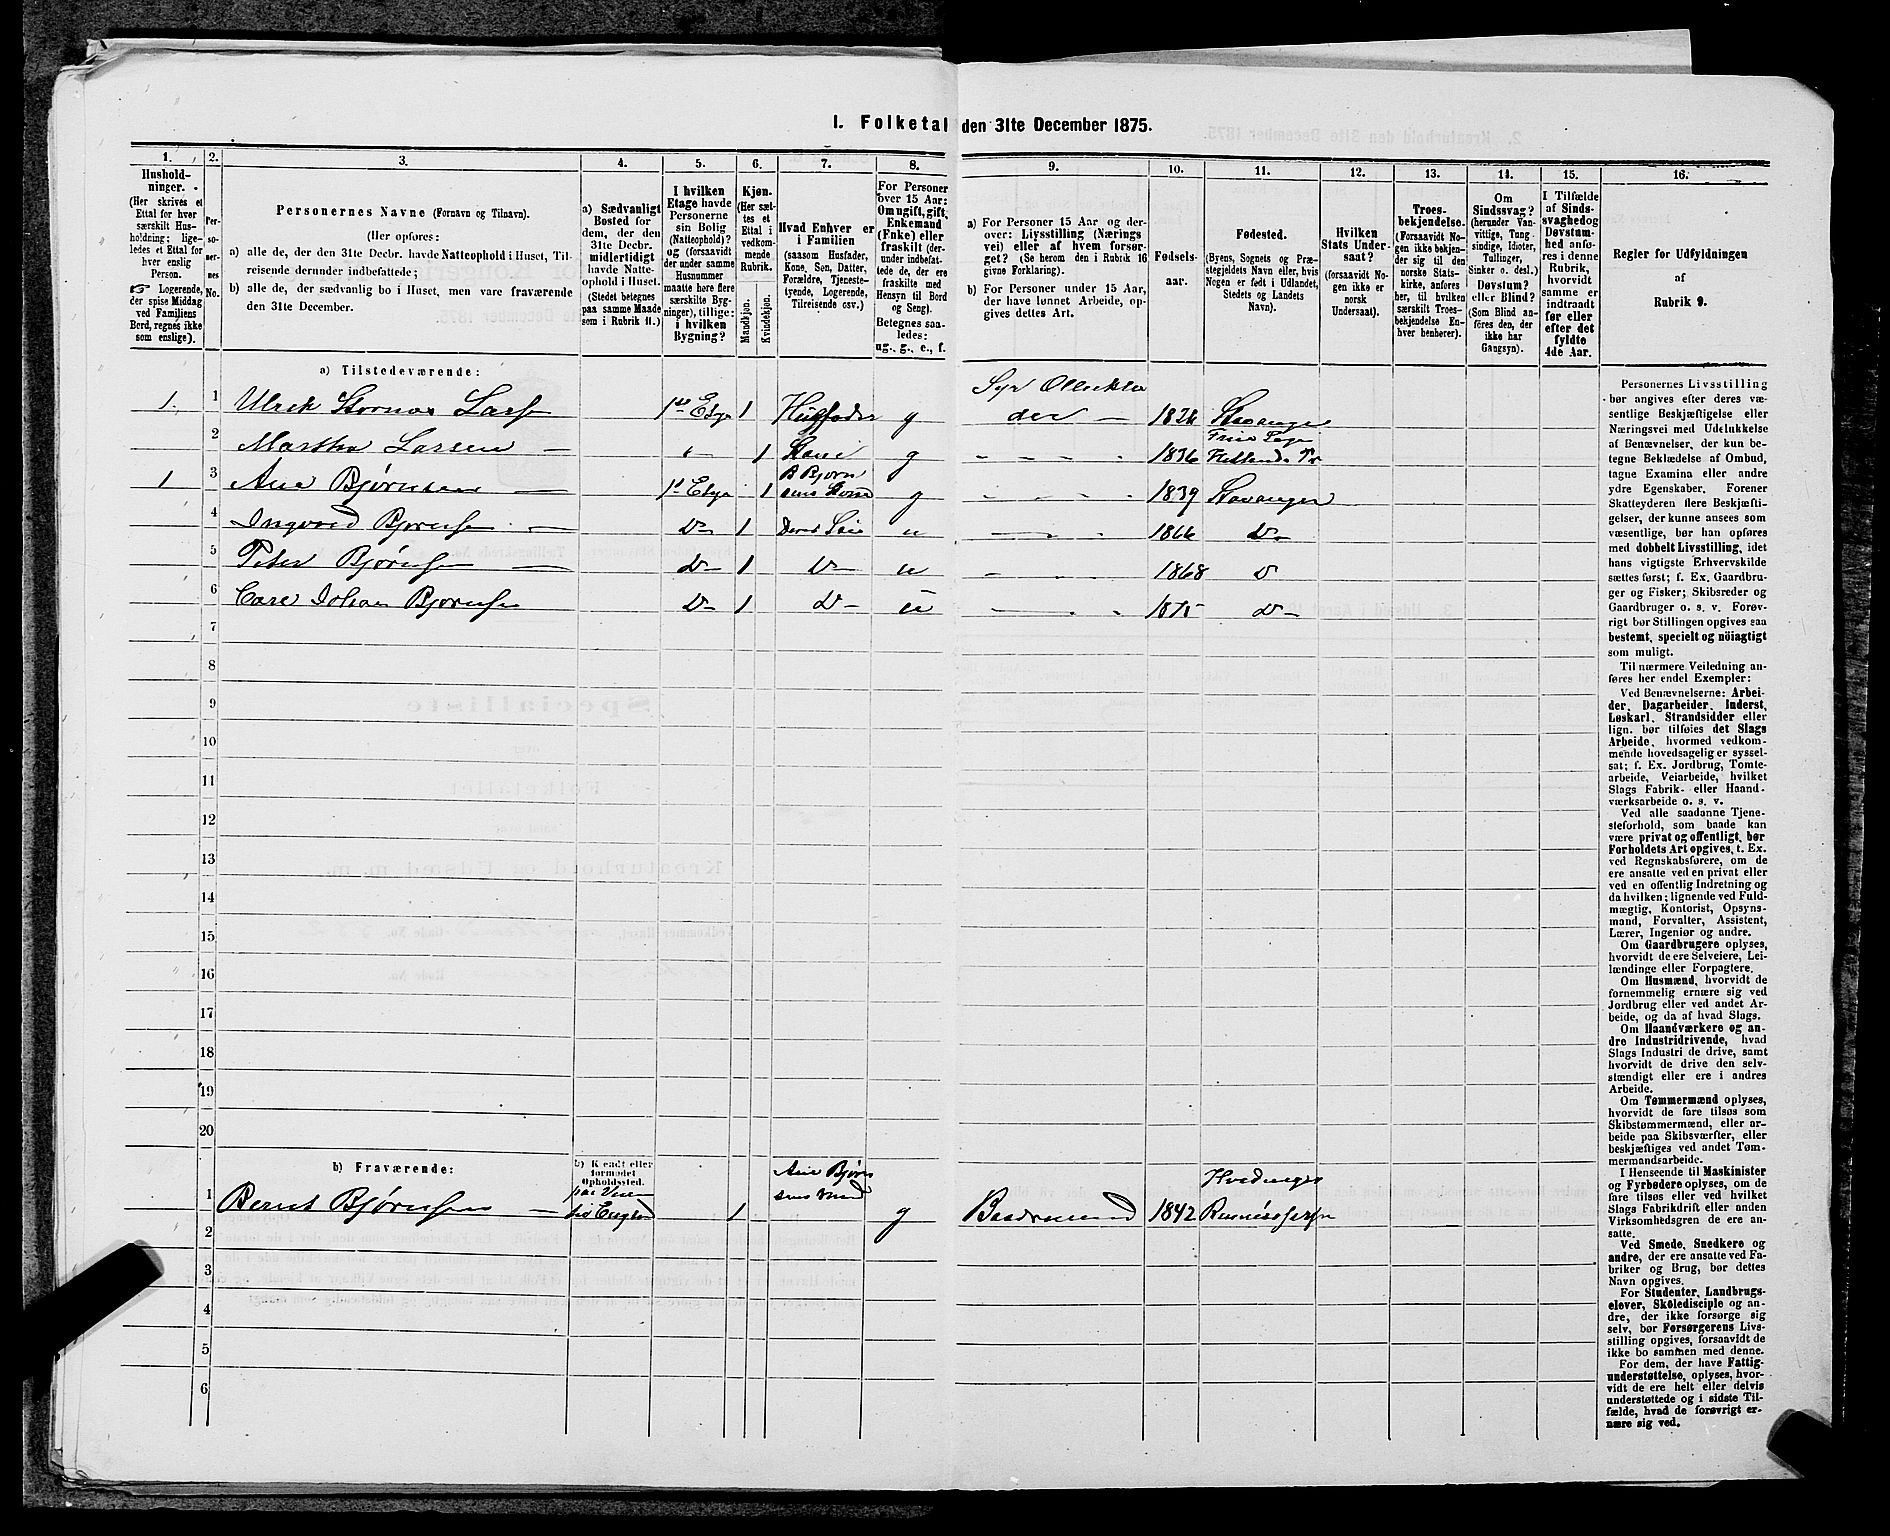 1. Folketal den 31te December 1875.
1.
2.
3.
4.
5.
6.
7.
8.
9.
10.
11.
12.
13.
14.
15.
16.
Hushold-
ninger.
(Her skrives et
Ettal for hver
særskilt Hus-
holdning; lige-
ledes et Ettal for
hver enslig
Person.
Logerende,
der spise Middag
ved Familiens
Bord, regnes ikke
som enslige).
Per-
so-
ner-
nes
No.
Personernes Navne (Fornavn og Tilnavn).
(Her opføres:
a) alle de, der den 31te Decbr. havde Natteophold i Huset, Til-
reisende derunder indbefattede;
b) alle de, der sædvanlig bo i Huset, men vare fraværende
den 31te December.
a) Sædvanligt
Bosted for
dem, der den
31te Decbr.
midlertidigt
havde Natte-
ophold i Huset.
(Stedet betegnes
paa samme Maade
som i Rubrik 11.)
I hvilken
Etage havde
Personerne
sin Bolig
(Natteophold)?
og (forsaavidt
der under samme
Husnummer
maatte høre flere
særskilte Byg-
ninger), tillige:
i hvilken
Bygning?
Kjøn.
(Her sæt-
tes et
Ettal i
vedkom-
mende
Rubrik.
Mandkjøn.
Kvindekjøn.
Hvad Enhver er
i Familien
(saasom Husfader,
Kone, Søn, Datter,
Forældre, Tjeneste-
tyende, Logerende,
Tilreisende osv.)
For Personer
over 15 Aar:
Om ugift, gift,
Enkemand
(Enke) eller
fraskilt (der-
under indbefat-
tede de, der ere
fraskilte med
Hensyn til Bord
og Seng).
Betegnes saa-
ledes:
ug., g., e., f.
a) For Personer 15 Aar og der-
over: Livsstilling (Nærings
vei) eller af hvem forsør-
get? (Se herom den i Rubrik 16
givne Forklaring).
b) For Personer under 15 Aar,
der have lønnet Arbeide, op-
gives dettes Art.
Fødsels-
aar.
Fødested.
(Byens, Sognets og Præ-
stegjeldets Navn eller, hvis
Nogen er født i Udlandet,
Stedets og Landets
Navn).
Hvilken
Stats Under-
saat?
(forsaavidt No-
gen ikke er
norsk
Undersaat).
Troes-
bekjendelse.
(Forsaavidt No-
gen ikke bekjen-
der sig til den
norske Stats-
kirke, anføres
her, til hvilken
særskilt Troes-
bekjendelse En-
hver henhører).
Om
Sindssvag?
(herunder Van-
vittige, Tung-
sindige, Idioter,
Tullinger,
Sinker o. desl.)
Døvstum?
eller Blind?
(Som Blind an-
føres den, der
ikke har
Gangsyn).
I Tilfælde
af Sinds-
svaghed og
Døvstum-
hed anfø-
res i denne
Rubrik,
hvorvidt
samme er
indtraadt
før eller
efter det
fyldte
4de Aar.
Regler for Udfyldningen
af
Rubrik 9.
a) Tilstedeværende:
1 1 Ulrik Larsen 1 g 1824 Stavanger
2 Martha Larsen — 1 g 1836
1 3 Ane Bjørnsen 1 B Bjørn g 1839 Stavanger
4 Ingvard Bjørnsen D— 1 u 1866 D—
5 Peter Bjørnsen — D— 1 D— u 1868 D
6 Carl Johan Bjørnsen D— 1 D— u 1875 D—
7
8
9
10
11
12
13
14
15
16
17
18
19
20
b) Fraværende:
b) Kjendt eller
formodet
Opholdssted.
1 Bernt Bjørnsen — 1 Ane Bjørn g 1842
2
3
4
5
6
Personernes Livsstilling
bør angives efter deres væ-
sentlige Beskjæftigelse eller
Næringsvei med Udelukkelse
af Benævnelser, der kun be-
tegne Beklædelse af Ombud,
tagne Examina eller andre
ydre Egenskaber. Forener
Skatteyderen flere Beskjæfti-
gelser, der kunne ansees som
væsentlige, bør han opføres
med dobbelt Livsstilling, idet
hans vigtigste Erhvervskilde
sættes først; f. Ex. Gaardbru-
ger og Fisker; Skibsreder og
Gaardbruger o. s. v. Forøv-
rigt bør Stillingen opgives saa
bestemt, specielt og nøiagtigt
som muligt.
Til nærmere Veiledning an-
føres her endel Exempler:
Ved Benævnelserne: Arbei-
der, Dagarbeider, Inderst,
Løskarl, Strandsidder eller
lign. bør tilføies det Slags
Arbeide, hvormed vedkom-
mende hovedsagelig er syssel-
sat; f. Ex. Jordbrug, Tomte-
arbeide, Veiarbeide, hvilket
Slags Fabrik- eller Haand-
værksarbeide o. s. v.
Ved alle saadanne Tjene-
steforhold, som baade kan
være privat og offentligt, bør
Forholdets Art opgives, t. Ex.
ved Regnskabsførere, om de
ere ansatte ved en privat eller
ved en offentlig Indretning og
da hvilken; lignende ved Fuld-
mægtig, Kontorist, Opsyns-
mand, Forvalter, Assistent,
Lærer, Ingeniør og andre.
Om Gaardbrugere oplyses,
hvorvidt de ere Selveiere, Lei-
lændinge eller Forpagtere.
Om Husmænd, hvorvidt de
fornemmelig ernære sig ved
Jordbrug eller ved andet Ar-
beide, og da af hvad Slags.
Om Haandværkere og an-
dre Industridrivende, hvad
Slags Industri de drive, samt
hvorvidt de drive den selv-
stændigt eller ere i andres
Arbeide.
Om Tømmermænd oplyses,
hvorvidt de fare tilsøs som
Skibstømmermænd, eller ar-
beide paa Skibsværfter, eller
beskjæftiges ved andet Tøm-
mermandsarbeide.
I Henseende til Maskinister
og Fyrbødere oplyses, om de
fare tilsøs eller ved hvilket
Slags Fabrikdrift eller anden
Virksomhedsgren de ere an-
satte.
Ved Smede, Snedkere og
andre, der ere ansatte ved Fa-
briker og Brug, bør dettes
Navn opgives.
For Studenter, Landbrugs-
elever, Skoledisciple og an-
dre, der ikke forsørge sig
selv, bør Forsørgerens Livs-
stilling opgives, forsaavidt de
ikke bo sammen med denne.
For dem, der have Fattig-
understøttelse, oplyses, hvor-
vidt de ere helt eller delvis
understøttede og i sidste Til-
fælde, hvad de forøvrigt er-
nære sig ved.